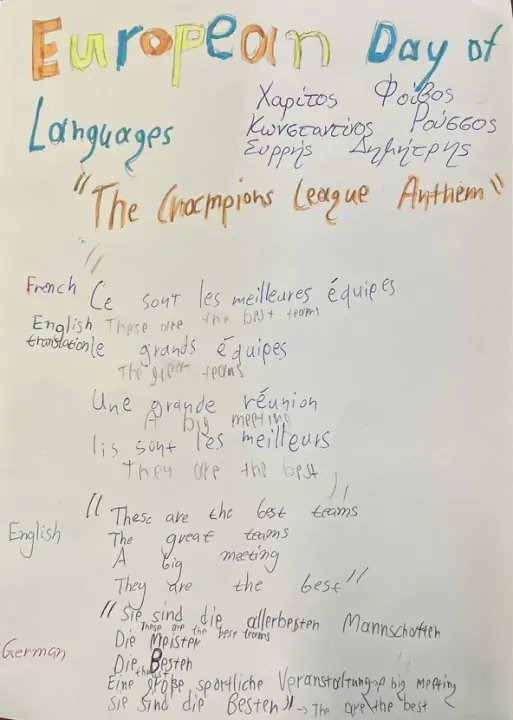 European Day of
Languages
Χαρίτος Φοίβος
Κωνσταντίνος Ρούσσος
Συρρής Δημήτρης
"The Chacmpions League Anthem"
"
French Ce sont les meilleures équipes
English These are the best teams
translation le grands équipes
The great teams
Une grande réunion
A big meeting
Ils sont les meilleurs
They are the best
"
English
" These are the best teams
The great teams
A big meeting
They are the best"
German
" Sie sind die allerbesten Mannschaften
These are the best teams
Die Meister
Die Besten
Eine große sportliche Veranstaltung → A big meeting
Sie sind die Besten" → The are the best